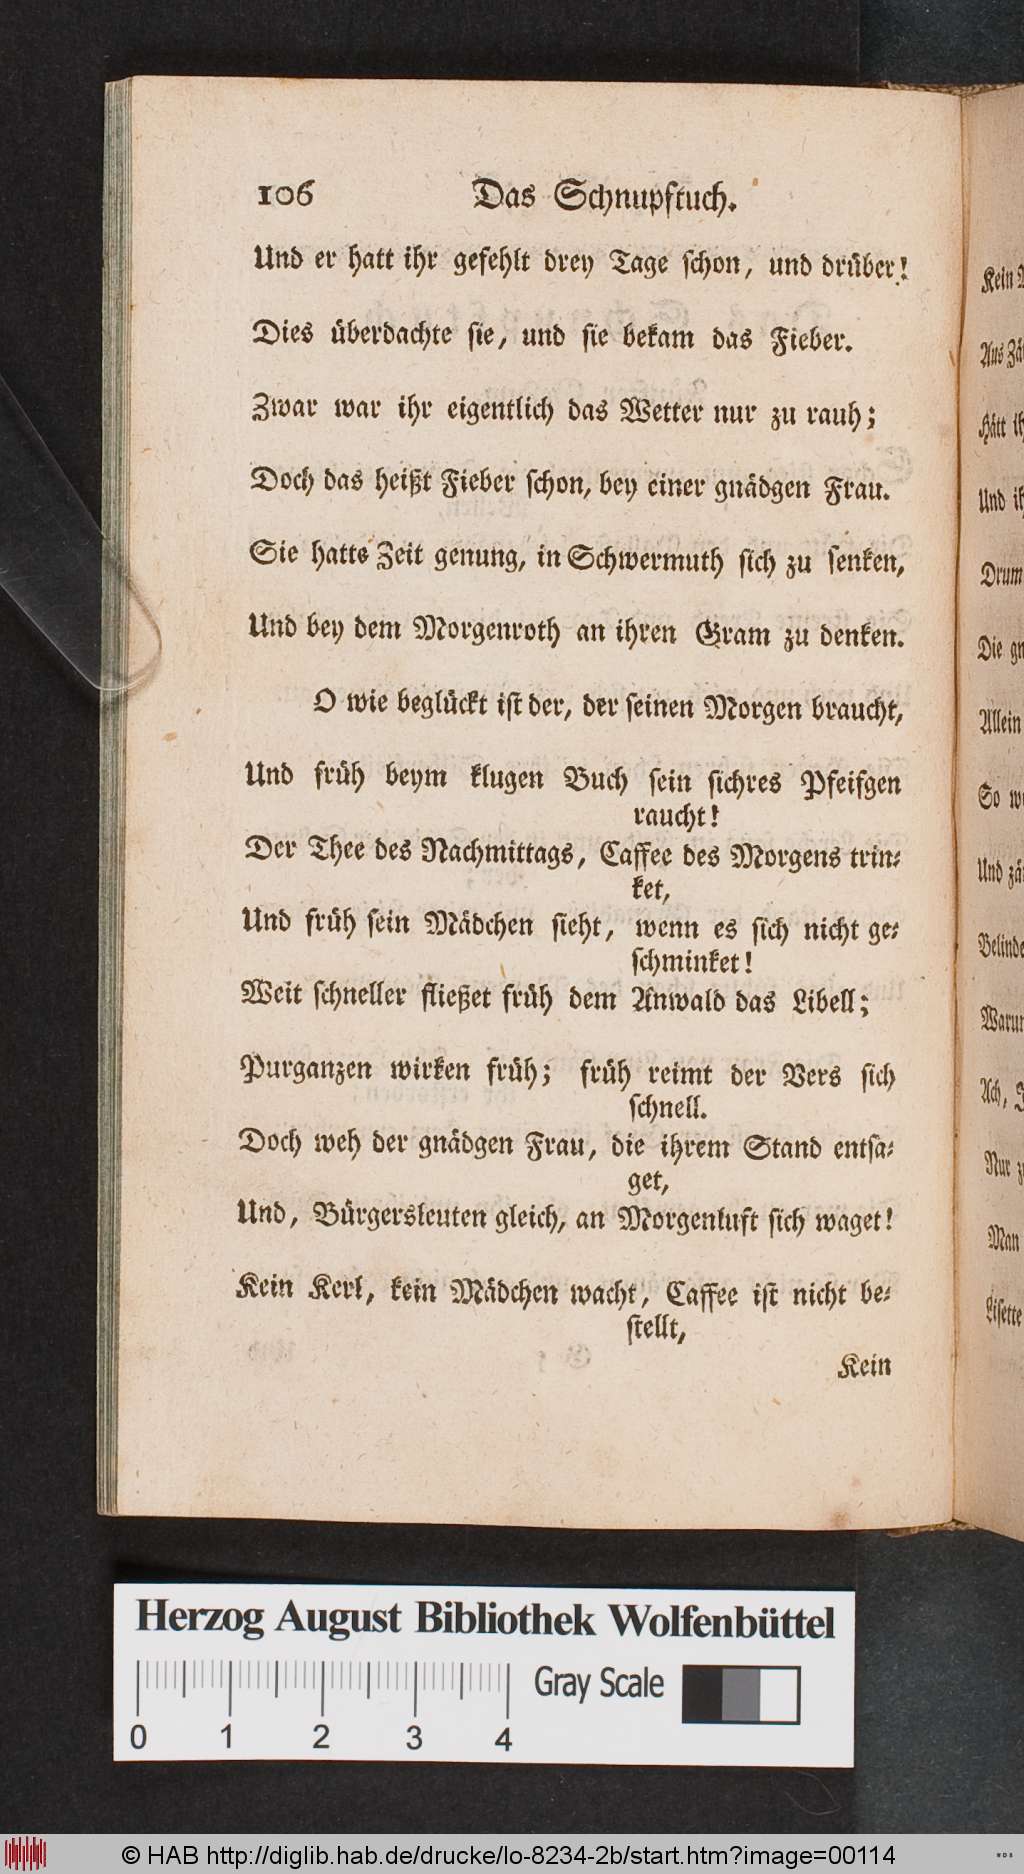 106 Das Schnupftuch.
Und er hatt ihr gefehlt drey Tage schon, und drüber!
Dies überdachte sie, und sie bekam das Fieber.
Zwar war ihr eigentlich das Wetter nur zu rauh;
Doch das heißt Fieber schon, bey einer gnädgen Frau.
Sie hatte Zeit genung, in Schwermuth sich zu senken,
Und bey dem Morgenroth an ihren Gram zu denken.
O wie beglückt ist der, der seinen Morgen braucht,
Und früh beym klugen Buch sein sichres Pfeifgen
raucht!
Der Thee des Nachmittags, Caffee des Morgens trin-
ket,
Und früh sein Mädchen sieht, wenn es sich nicht ge-
schminket!
Weit schneller fließet früh dem Anwald das Libell;
Purganzen wirken früh; früh reimt der Vers sich
schnell.
Doch weh der gnädgen Frau, die ihrem Stand entsa-
get,
Und, Bürgersleuten gleich, an Morgenluft sich waget!
Kein Kerl, kein Mädchen wacht, Caffee ist nicht be-
stellt,
Kein
Kein
Aus
Hätt
Und
Drum
Die
Allein
So
Und
Ach,
Nur
Man
Lisette
Herzog August Bibliothek Wolfenbüttel
Gray Scale
0 1 2 3 4
© HAB http://diglib.hab.de/drucke/lo-8234-2b/start.htm?image=00114